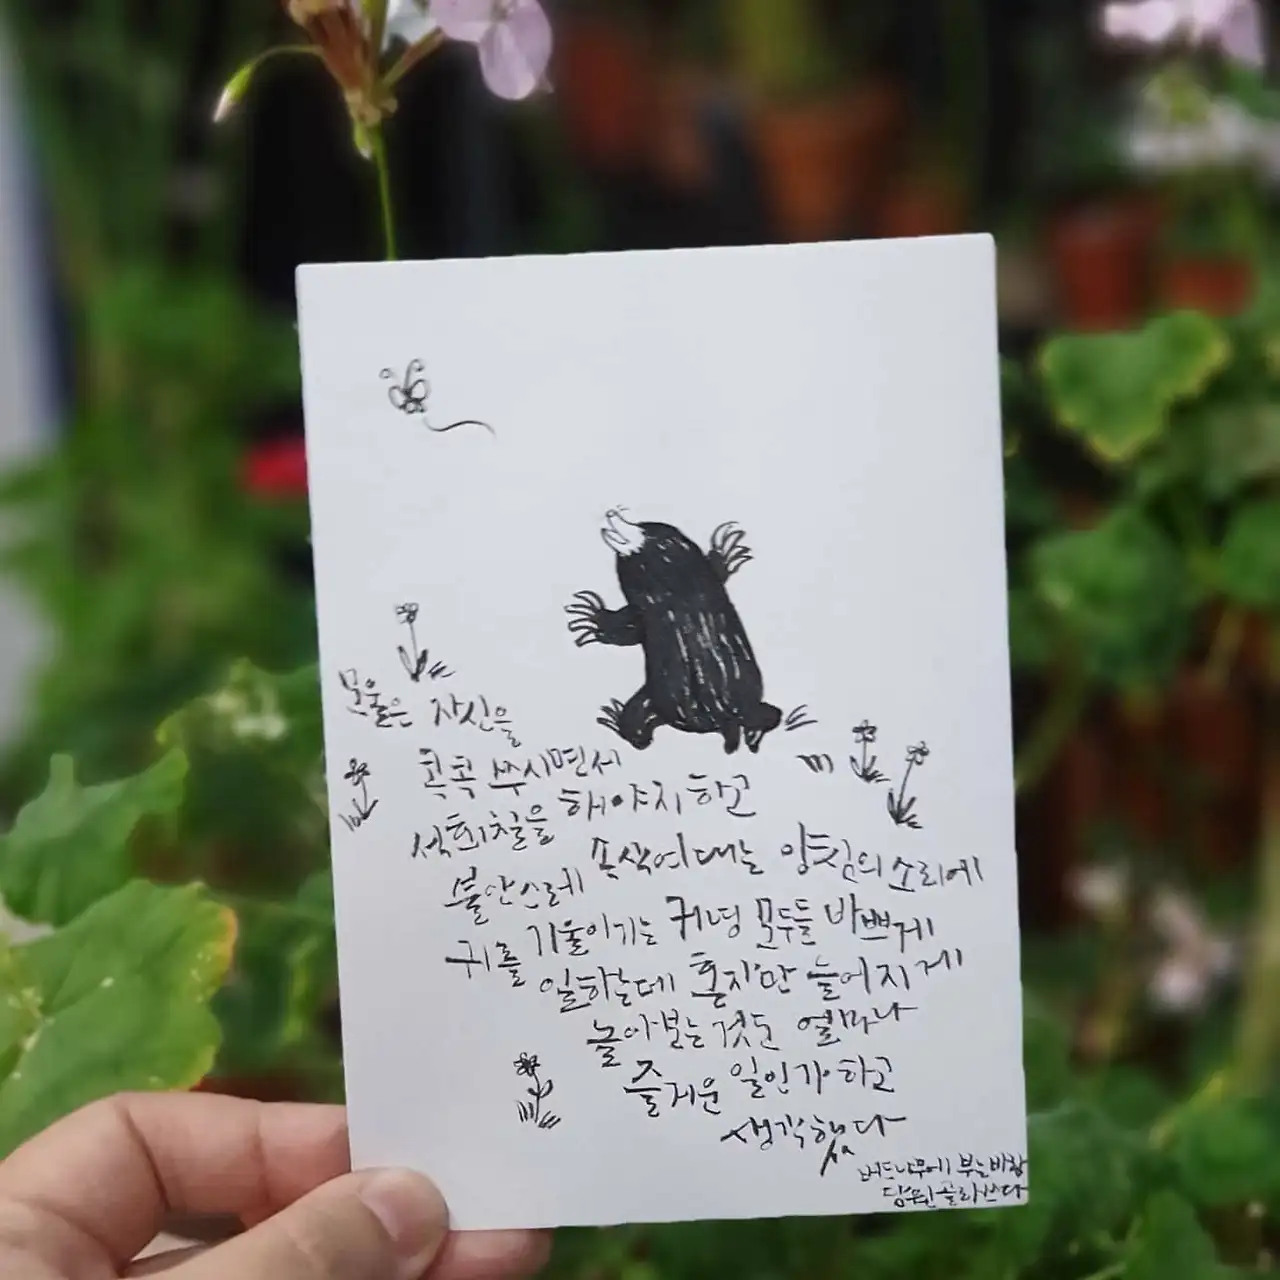 모올은 자신을
콕콕 쑤시면서
석회칠을 해야지 하고
불안스레 속삭여대는 양심의 소리에
귀를 기울이기는 커녕 모두들 바쁘게
일하는데 혼자만 늘어지게
놀아보는 것은 얼마나
즐거운 일인가 하고
생각했다
버드나무에 부는 바람
당원 골라쓰다